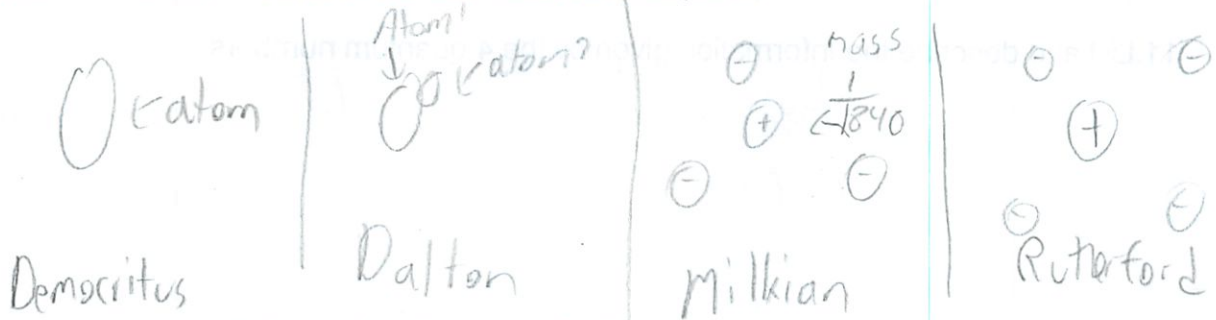 ←atom
Democritus
Atom!
←atom?
Dalton
-
mass
+
←1/1840
-
-
Milkian
-
-
+
-
-
Rutherford